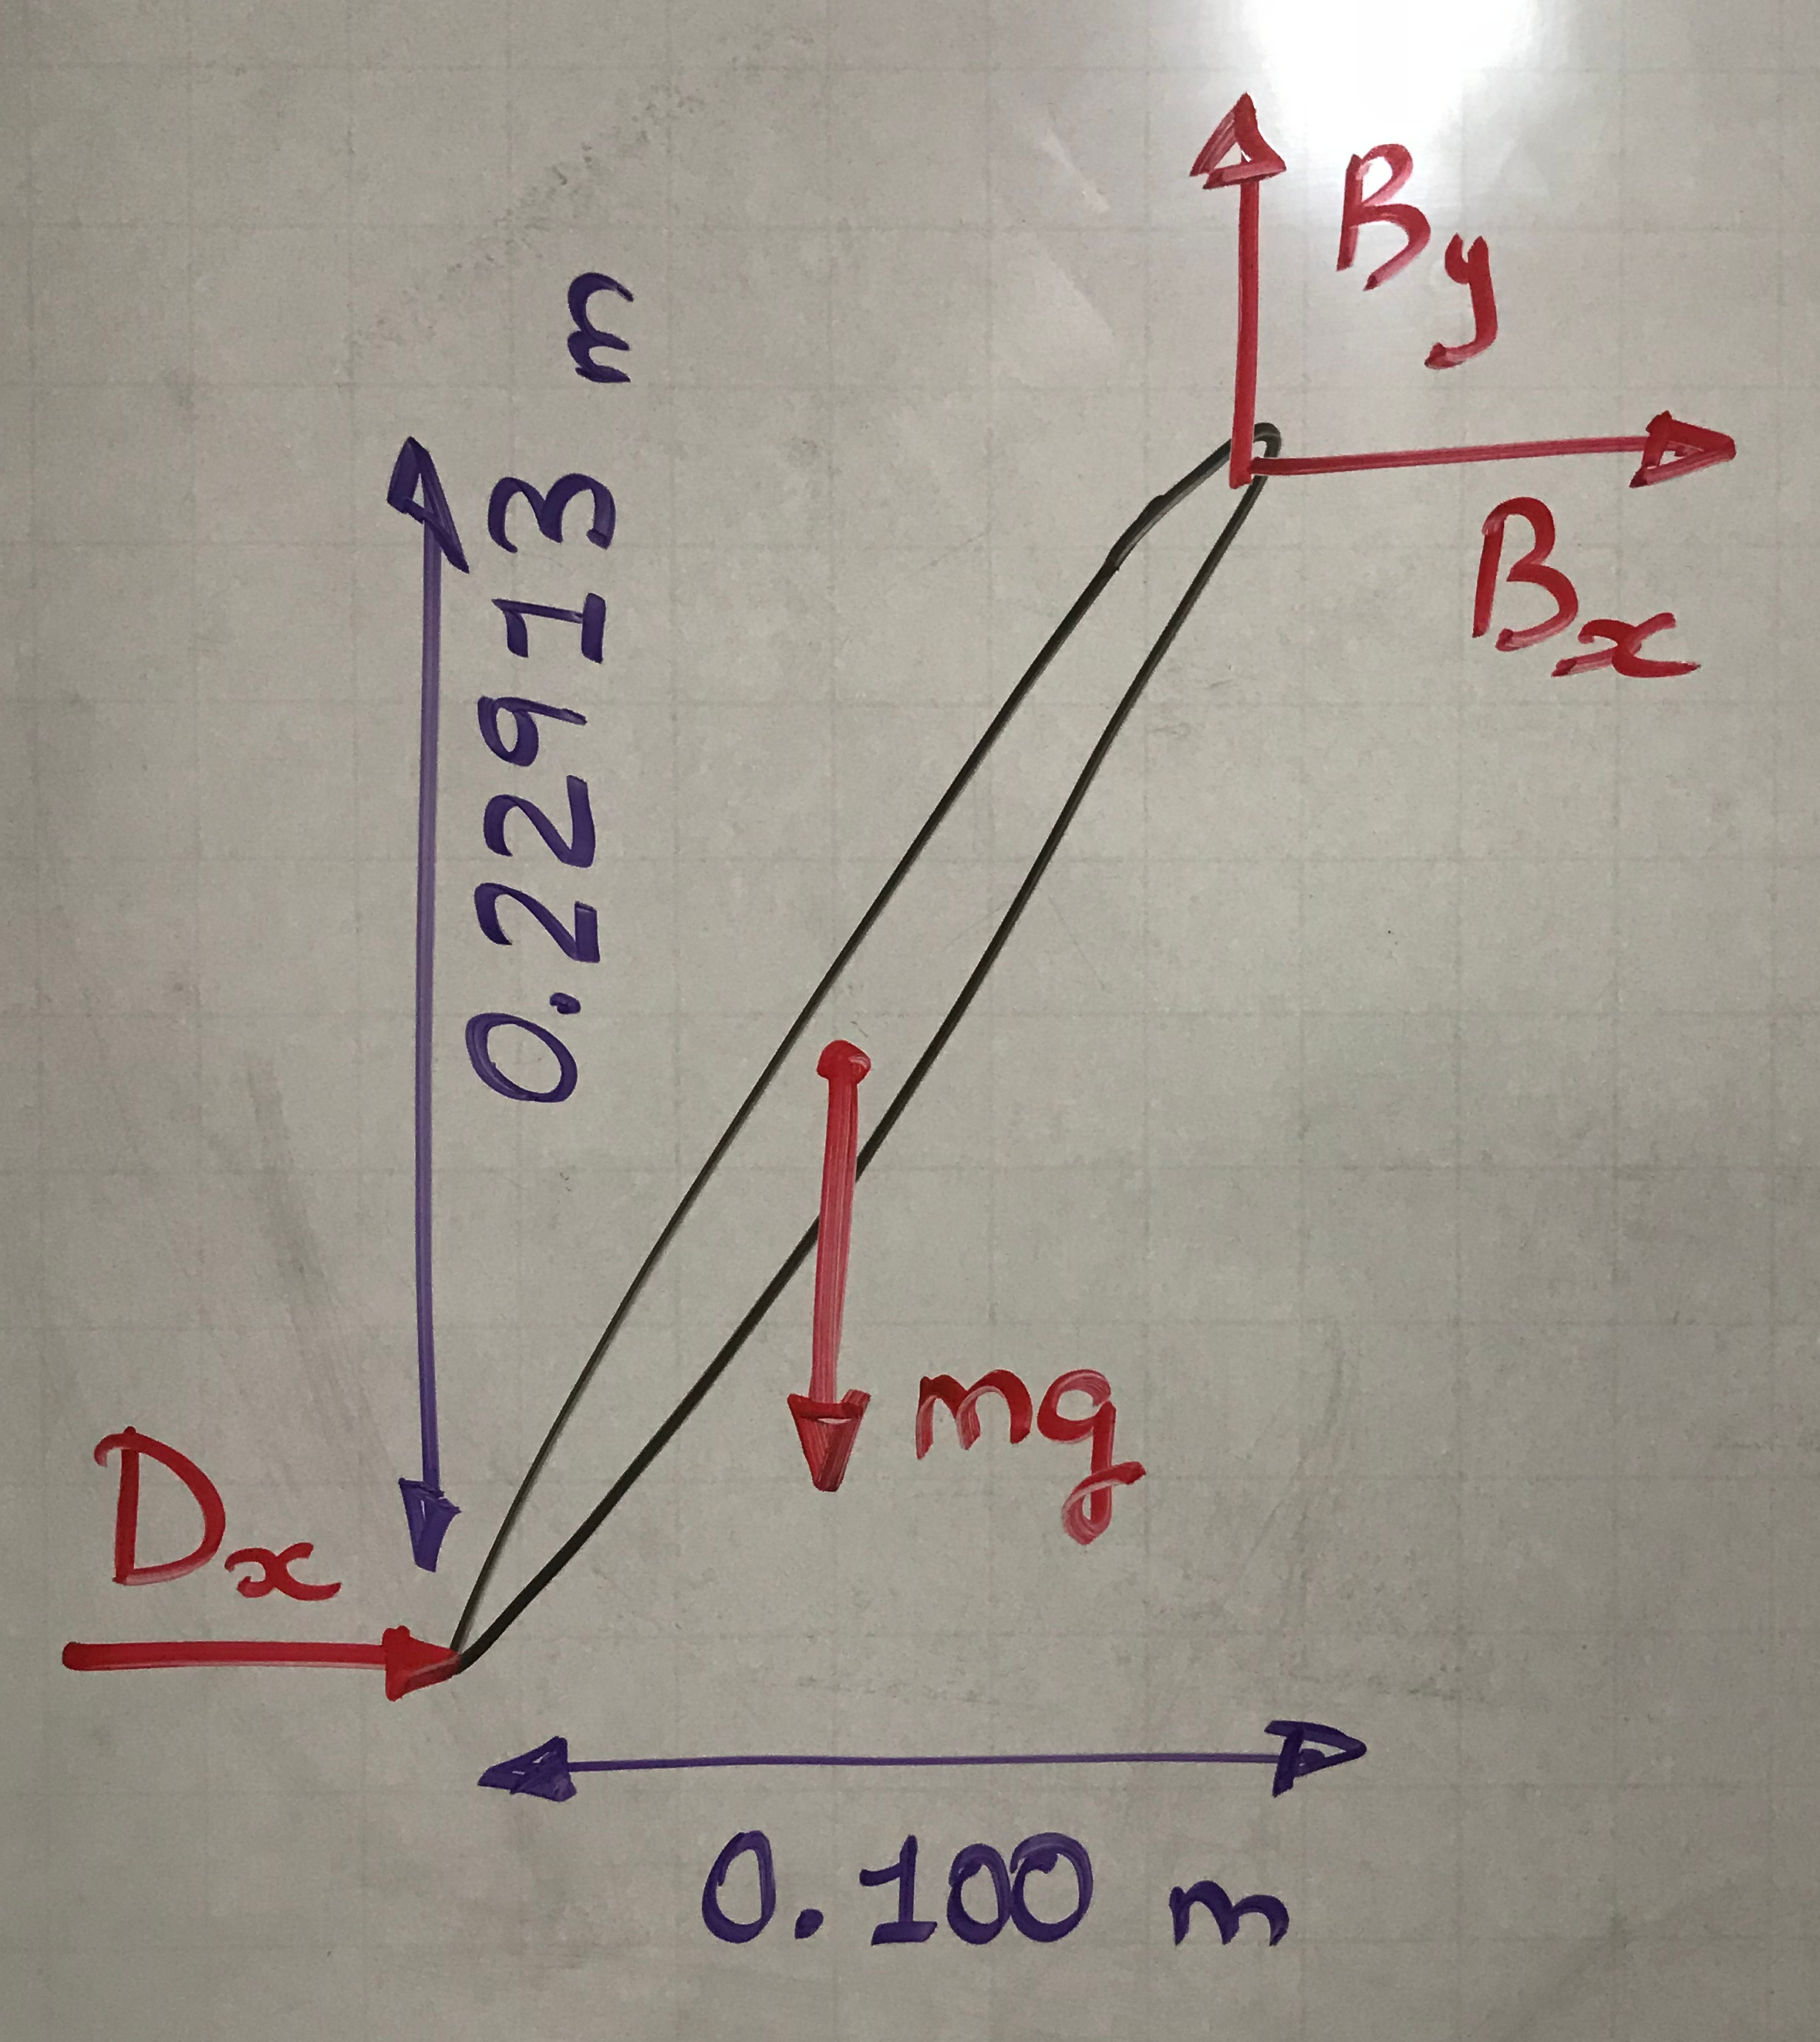 By
Bx
0.22913 m
mg
Dx
0.100 m